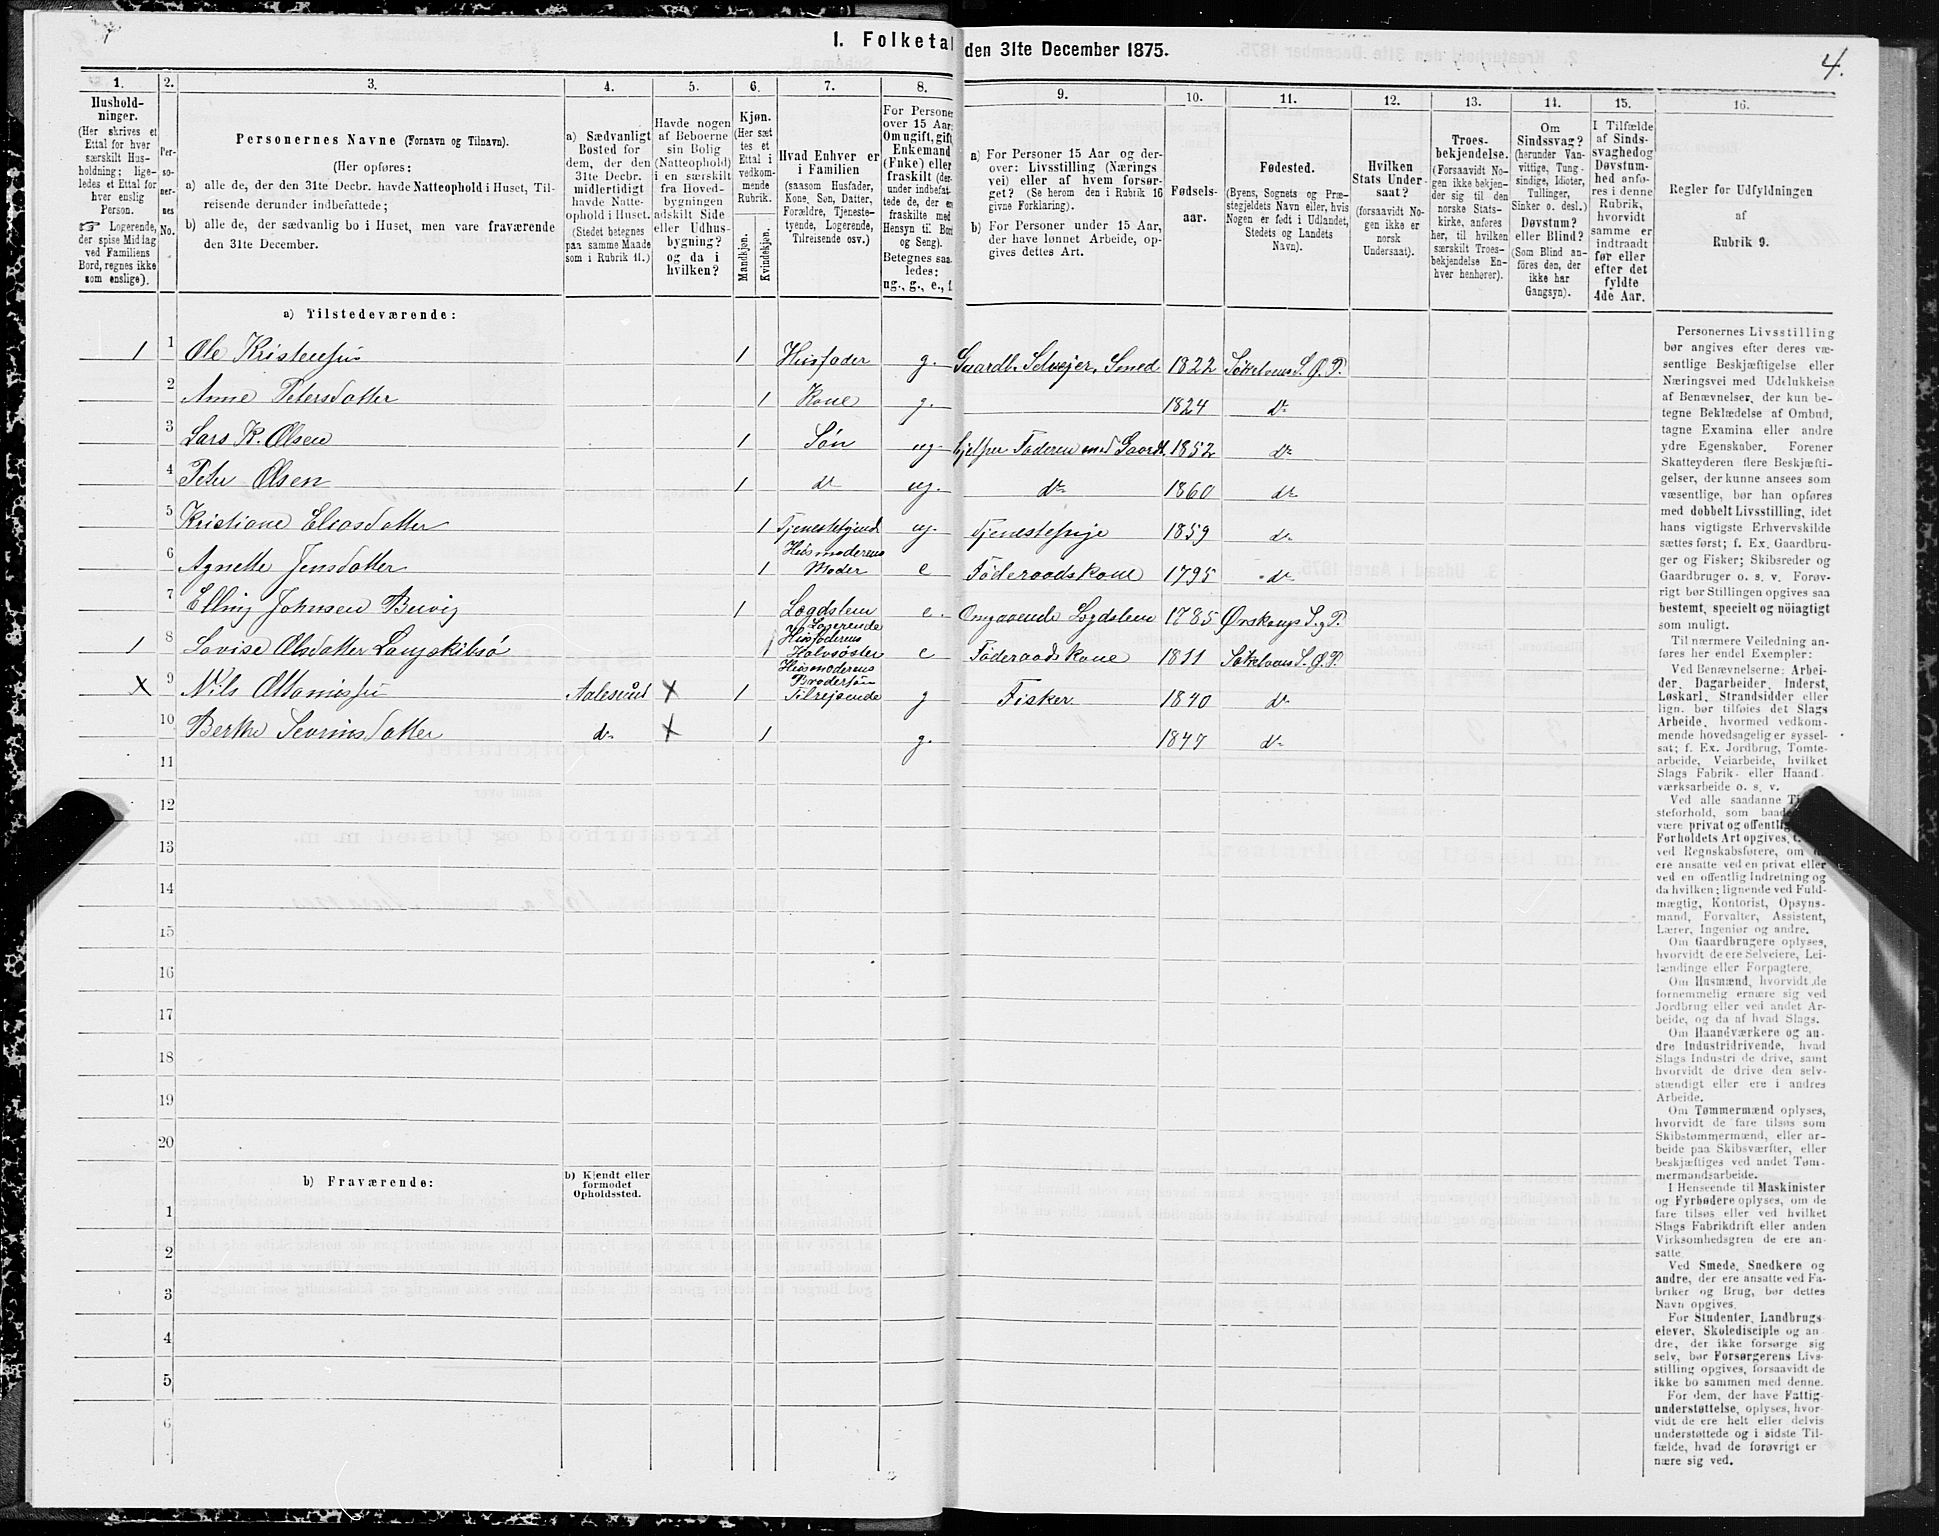 1. Folketal den 31te December 1875.
4.
1.
Hushold-
ninger.
(Her skrives et
Ettal for hver
særskilt Hus-
holdning; lige-
ledes et Ettal for
hver enslig
Person.
☞ Logerende,
der spise Middag
ved Familiens
Bord, regnes ikke
som enslige).
2.
Per-
so-
ner-
nes
No.
3.
Personernes Navne (Fornavn og Tilnavn).
(Her opføres:
a) alle de, der den 31te Decbr. havde Natteophold i Huset, Til-
reisende derunder indbefattede;
b) alle de, der sædvanlig bo i Huset, men vare fraværende
den 31te December.
4.
a) Sædvanligt
Bosted for
dem, der den
31te Decbr.
midlertidigt
havde Natte-
ophold i Huset.
(Stedet betegnes
paa samme Maade
som i Rubrik 11.)
5.
Havde nogen
af Beboerne
sin Bolig
(Natteophold)
i en særskilt
fra Hoved-
bygningen
adskilt Side
eller Udhus-
bygning?
og da i
hvilken?
6.
Kjøn.
(Her sæt-
tes et
Ettal i
vedkom-
mende
Rubrik.
Mandkjøn.
Kvindekjøn.
7.
Hvad Enhver er
i Familien
(saasom Husfader,
Kone, Søn, Datter,
Forældre, Tjeneste-
tyende, Logerende,
Tilreisende osv.)
8.
For Personer
over 15 Aar:
Om ugift, gift,
Enkemand
(Enke) eller
fraskilt
Betegnes saa-
ledes:
ug., g., e., f.
9.
a) For Personer 15 Aar og der-
over: Livsstilling (Nærings
vei) eller af hvem forsør-
get? (Se herom den i Rubrik 16
givne Forklaring).
b) For Personer under 15 Aar,
der have lønnet Arbeide, op-
gives dettes Art.
10.
Fødsels-
aar.
11.
Fødested.
(Byens, Sognets og Præ-
stegjeldets Navn eller, hvis
Nogen er født i Udlandet,
Stedets og Landets
Navn).
12.
Hvilken
Stats Under-
saat?
(forsaavidt No-
gen ikke er
norsk
Undersaat).
13.
Troes-
bekjendelse.
(Forsaavidt No-
gen ikke bekjen-
der sig til den
norske Stats-
kirke, anføres
her, til hvilken
særskilt Troes-
bekjendelse En-
hver henhører).
14.
Om
Sindssvag?
(herunder Van-
vittige, Tung-
sindige, Idioter,
Tullinger,
Sinker o. desl.)
Døvstum?
eller Blind?
(Som Blind an-
føres den, der
ikke har
Gangsyn).
15.
I Tilfælde
af Sinds-
svaghed og
Døvstum-
hed anfø-
res i denne
Rubrik,
hvorvidt
samme er
indtraadt
før eller
efter det
fyldte
4de Aar.
16.
Regler for Udfyldningen
af
Rubrik 9.
a) Tilstedeværende:
1 1 Ole Kristensen 1 Husfader g. Gaardb. Selvejer, Smed 1822 Søkelvens S. Ø. P.
2 Anne Petersdatter 1 Kone g. 1824 do
3 Lars K. Olsen 1 Søn ug. hjelper Faderen med Gaardb. 1852 do
4 Peter Olsen 1 do ug. do 1860 do
5 Kristiane Eliasdatter 1 Tjenestetyende ug. Tjenestepige 1859 do
6 Agnette Jensdatter 1 Husmoderens Moder e Føderaadskone 1795 do
7 Elling Johnsen Buvig 1 Lægdslem e. Omgaaende Lægdslem 1785 Ørskougs S. og P.
1 8 Lovise Olsdatter Langskibsø 1 Logerende Husfaderens Halvsøster e Føderaadskone 1811 Søkelvens S. Ø. P.
X 9 Nils Ottomissen Aalesund X 1 Husmoderens Brodersøn Tilrejsende g Fisker 1840 do
10 Berthe Sevrinsdatter do X 1 g. 1847 do
11
12
13
14
15
16
17
18
19
20
b) Fraværende:
b) Kjendt eller
formodet
Opholdssted.
1
2
3
4
5
6
Personernes Livsstilling
bør angives efter deres væ-
sentlige Beskjæftigelse eller
Næringsvei med Udelukkelse
af Benævnelser, der kun be-
tegne Beklædelse af Ombud,
tagne Examina eller andre
ydre Egenskaber. Forener
Skatteyderen flere Beskjæfti-
gelser, der kunne ansees som
væsentlige, bør han opføres
med dobbelt Livsstilling, idet
hans vigtigste Erhvervskilde
sættes først; f. Ex. Gaardbru-
ger og Fisker; Skibsreder og
Gaardbruger o. s. v. Forøv-
rigt bør Stillingen opgives saa
bestemt, specielt og nøiagtigt
som muligt.
Til nærmere Veiledning an-
føres her endel Exempler:
Ved Benævnelserne: Arbei-
der, Dagarbeider, Inderst,
Løskarl, Strandsidder eller
lign. bør tilføies det Slags
Arbeide, hvormed vedkom-
mende hovedsagelig er syssel-
sat; f. Ex. Jordbrug, Tomte-
arbeide, Veiarbeide, hvilket
Slags Fabrik- eller Haand-
værksarbeide o. s. v.
Ved alle saadanne
steforhold, som
være privat og offentlig
Forholdets Art opgives,
ved Regnskabsførere, om
ere ansatte ved en privat eller
ved en offentlig Indretning og
da hvilken; lignende ved Fuld-
mægtig, Kontorist, Opsyns-
mand, Forvalter, Assistent,
Lærer, Ingeniør og andre.
Om Gaardbrugere oplyses,
hvorvidt de ere Selveiere, Lei-
lændinge eller Forpagtere.
Om Husmænd, hvorvidt de
fornemmelig ernære sig ved
Jordbrug eller ved andet Ar-
beide, og da af hvad Slags.
Om Haandværkere og an-
dre Industridrivende, hvad
Slags Industri de drive, samt
hvorvidt de drive den selv-
stændigt eller ere i andres
Arbeide.
Om Tømmermænd oplyses,
hvorvidt de fare tilsøs som
Skibstømmermænd, eller ar-
beide paa Skibsværfter, eller
beskjæftiges ved andet Tøm-
mermandsarbeide.
I Henseende til Maskinister
og Fyrbødere oplyses, om de
fare tilsøs eller ved hvilket
Slags Fabrikdrift eller anden
Virksomhedsgren de ere an-
satte.
Ved Smede, Snedkere og
andre, der ere ansatte ved Fa-
briker og Brug, bør dettes
Navn opgives.
For Studenter, Landbrugs-
elever, Skoledisciple og an-
dre, der ikke forsørge sig
selv, bør Forsørgerens Livs-
stilling opgives, forsaavidt de
ikke bo sammen med denne.
For dem, der have Fattig-
understøttelse, oplyses, hvor-
vidt de ere helt eller delvis
understøttede og i sidste Til-
fælde, hvad de forøvrigt er
nære sig ved.